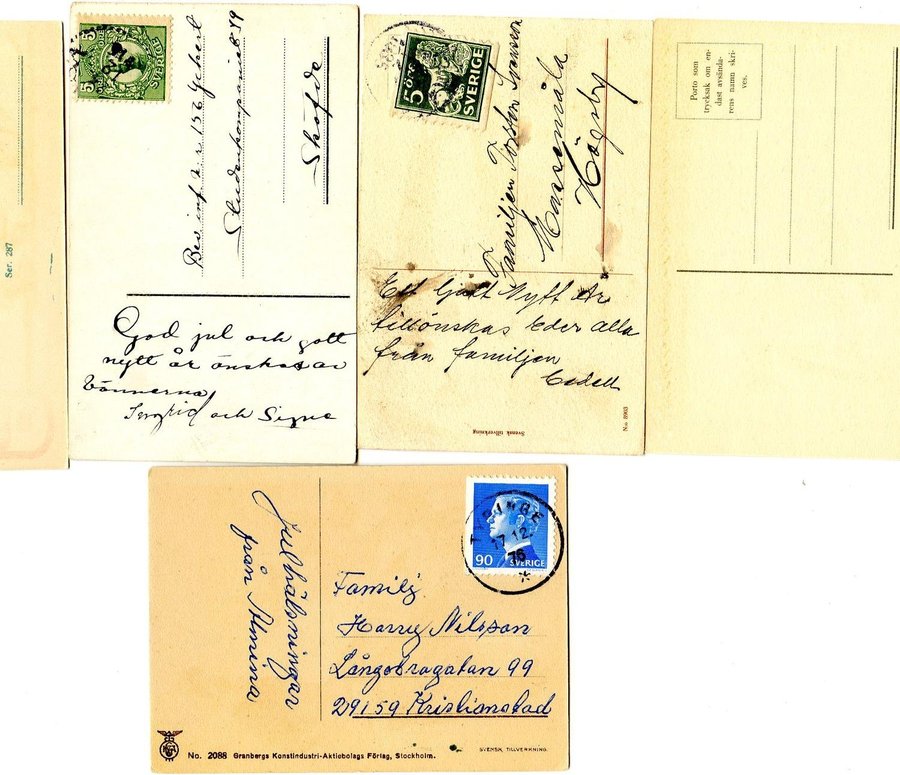 Ser. 287
5 SVERIGE 5
Bev inf. n:r 132
Studentkompaniet 879
Skövde
God jul och gott
nytt år önskas av
vännerna
Ingrid och Signe
5 ÖRE
SVERIGE
Familjen
Högsby
Ett Gott Nytt År
tillönskas Eder alla
från familjen
Svensk tillverkning
N:o 8903
Porto som
trycksak om en-
dast avsända-
rens namn skri-
ves.
Julhälsningar
från Almina
90 SVERIGE
TYRINGE
17.12.
76
Familj
Harry Nilsson
Långebrogatan 99
29159 Kristianstad
No. 2088 Granbergs Konstindustri-Aktiebolags Förlag, Stockholm.
SVENSK TILLVERKNING.